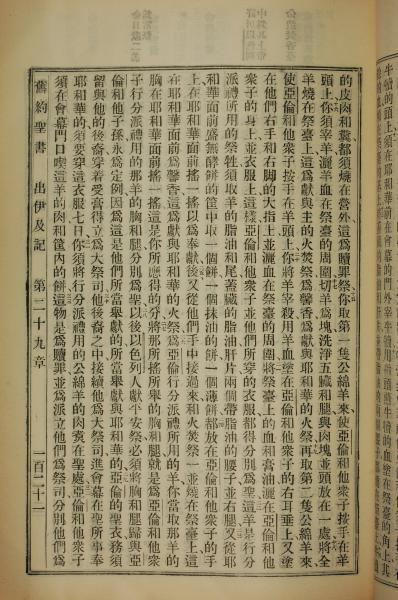 的皮肉和糞都須燒在營外這爲贖罪祭你取第一隻公綿羊來使亞倫和他衆子按手在羊
頭上你須宰羊灑羊血在祭臺的周圍切羊爲塊洗淨五臟和腿與肉塊並頭放在一處將全
羊燒在祭臺上這爲獻與主的火焚祭爲馨香爲獻與耶和華的火祭再取第二隻公綿羊來
使亞倫和他衆子按手在羊頭上你將羊宰殺用羊血塗在亞倫和他衆子的右耳垂上又塗
在他們右手和右脚的大指上並灑血在祭臺的周圍將祭臺上的血和膏油灑在亞倫和他
衆子的身上並衣服上這樣亞倫和他衆子並他們所穿的衣服都得分別爲聖這羊是行分
派禮所用的祭牲須取羊的脂油和尾蓋臟的脂油肝片兩個帶脂油的腰子並右腿又從耶
和華面前盛無酵餅的筐中取一個餅一個抹油的餅一個薄餅都放在亞倫和他衆子的手
上在耶和華面前搖一搖以爲奉獻後又從他們手中接過來和火焚祭一並燒在祭臺上這
在耶和華面前爲馨香這爲獻與耶和華的火祭爲亞倫行分派禮所用的羊你當取那羊的
胸在耶和華面前搖一搖這是你所應得的分將那所搖所舉的胸和腿就是爲亞倫和他衆
子行分派禮用的那羊的胸和腿分別爲聖以後以色列人獻平安祭必須將胸和腿歸與亞
倫和他子孫永爲定例因爲這是他們所當舉獻的所當舉獻與耶和華的亞倫的聖衣務須
留與他的後裔穿着受膏得立爲大祭司他後裔之中接續他爲大祭司進會幕在聖所事奉
耶和華的須要穿這衣服七日你須將行分派禮用的公綿羊的肉煑在聖處亞倫和他衆子
須在會幕門口喫這羊的肉和筐內的餅這物是爲贖罪並爲派立他們爲祭司分別他們爲
舊約聖書 出伊及記 第二十九章 一百二十一